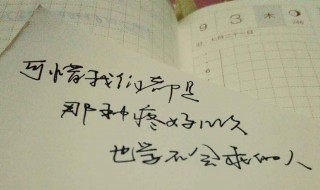 9 3 木
可惜我们都是
那种疼好几次
也学不会乖的人